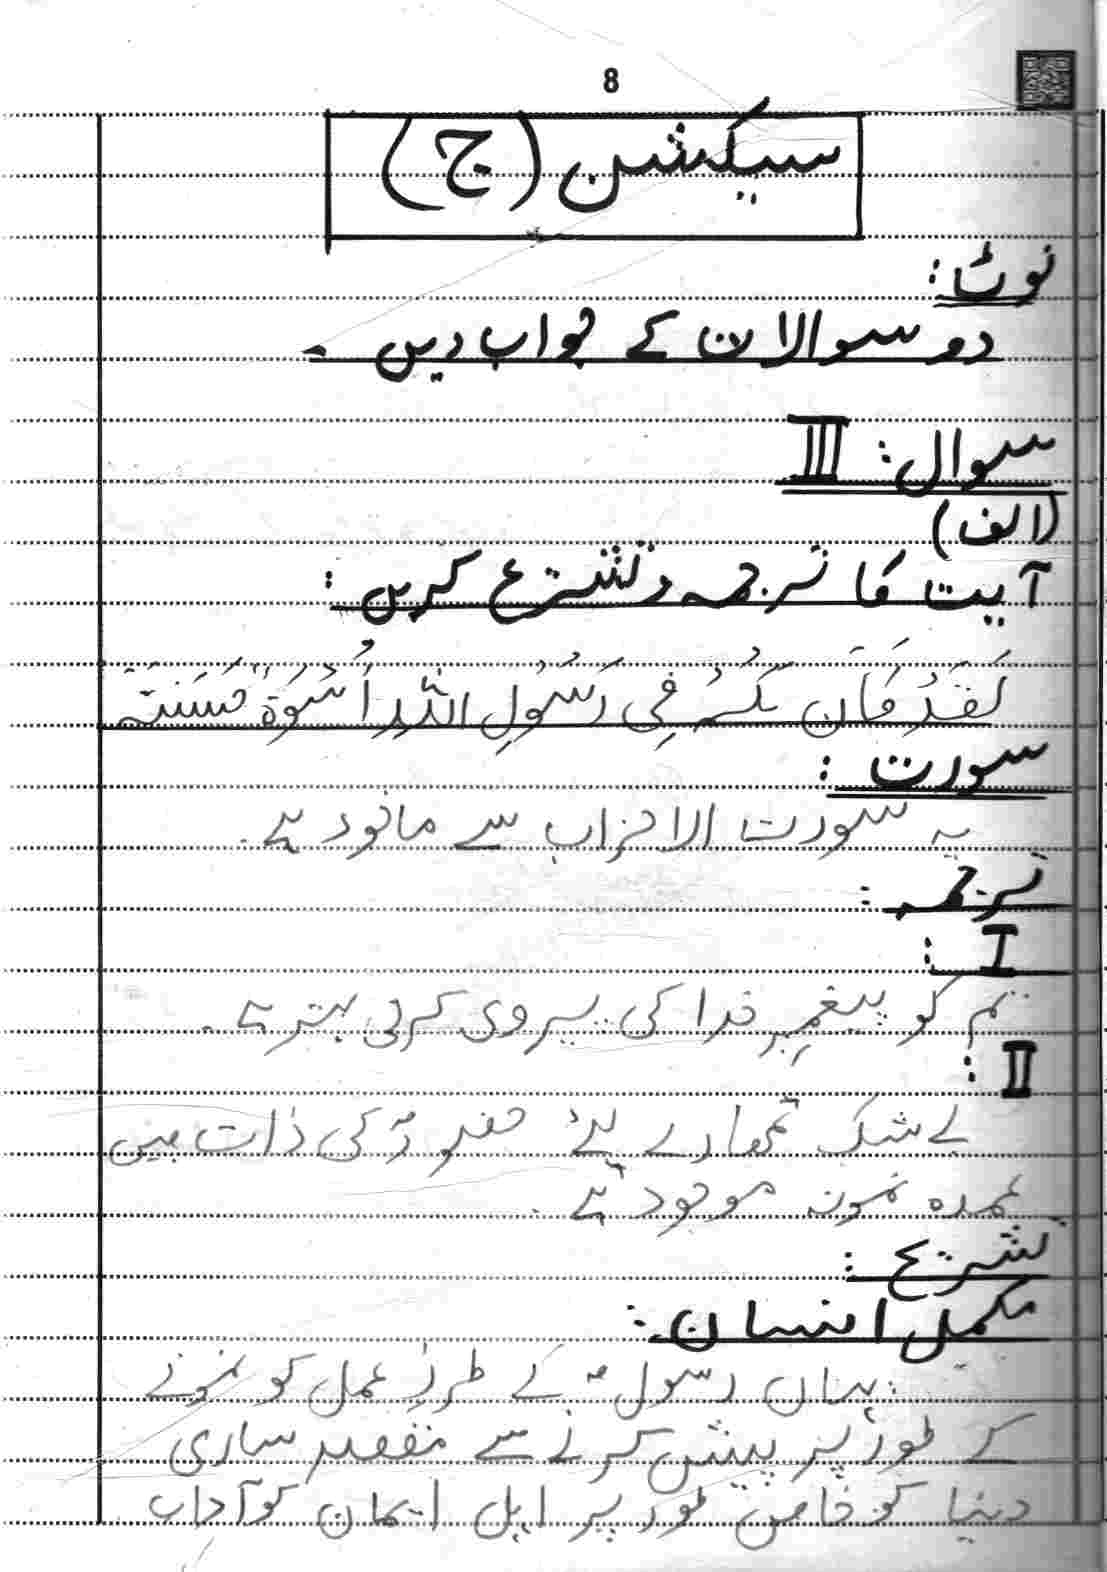 8
سیکشن (ج)
نوٹ:
دو سوالات کے جواب دیں۔
سوال: III
(الف)
آیت کا ترجمہ و تشریح کریں:
لَقَدْ كَانَ لَكُمْ فِي رَسُولِ اللّٰهِ اُسْوَةٌ حَسَنَةٌ
سورت:
یہ سورت الاحزاب سے ماخوذ ہے۔
ترجمہ:
I:
تم کو پیغمبرِ خدا کی پیروی کرنی بہتر ہے۔
II:
بے شک تمھارے لئے حضورؐ کی ذات میں
عمدہ نمونہ موجود ہے۔
تشریح:
مکمل انسان:
یہاں رسولؐ کے طرزِ عمل کو نمونے
کے طور پر پیش کرنے سے مقصد ساری
دنیا کو خاص طور پر اہل ایمان کو آداب